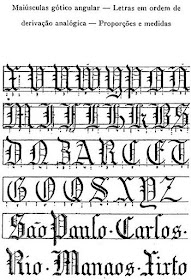 Maiúsculas gótico angular — Letras em ordem de
derivação analógica — Proporções e medidas
X V U W Y P D N
M I J L H K B S
D N Z A R C E T
G O Q S X Y Z
São Paulo-Carlos-
Rio-Mangos-Xirto